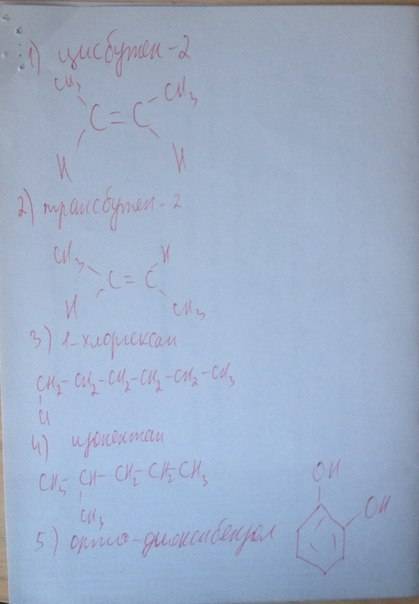 1) цисбутен-2
CH3 CH3
C=C
H H
2) трансбутен-2
CH3 H
C=C
H CH3
3) 1-хлоргексан
CH2-CH2-CH2-CH2-CH2-CH3
Cl
4)
CH3-CH-CH2-CH2CH3
CH3
OH
OH
5) орто-диоксибензол